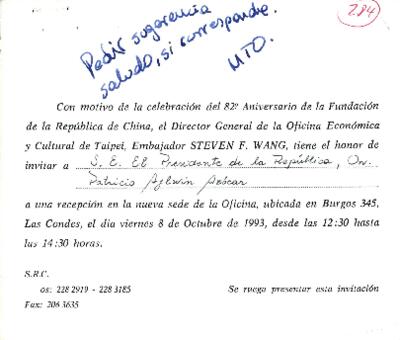 284
Pedir sugerencia
saludo, si corresponde.
MTO.
Con motivo de la celebración del 82º Aniversario de la Fundación
de la República de China, el Director General de la Oficina Económica
y Cultural de Taipei, Embajador STEVEN F. WANG, tiene el honor de
invitar a S. E. El Presidente de la República, Dn.
Patricio Aylwin Azócar
a una recepción en la nueva sede de la Oficina, ubicada en Burgos 345,
Las Condes, el día viernes 8 de Octubre de 1993, desde las 12:30 hasta
las 14:30 horas.
S.R.C.
os: 228 2919 - 228 3185 Se ruega presentar esta invitación
Fax: 206 3635